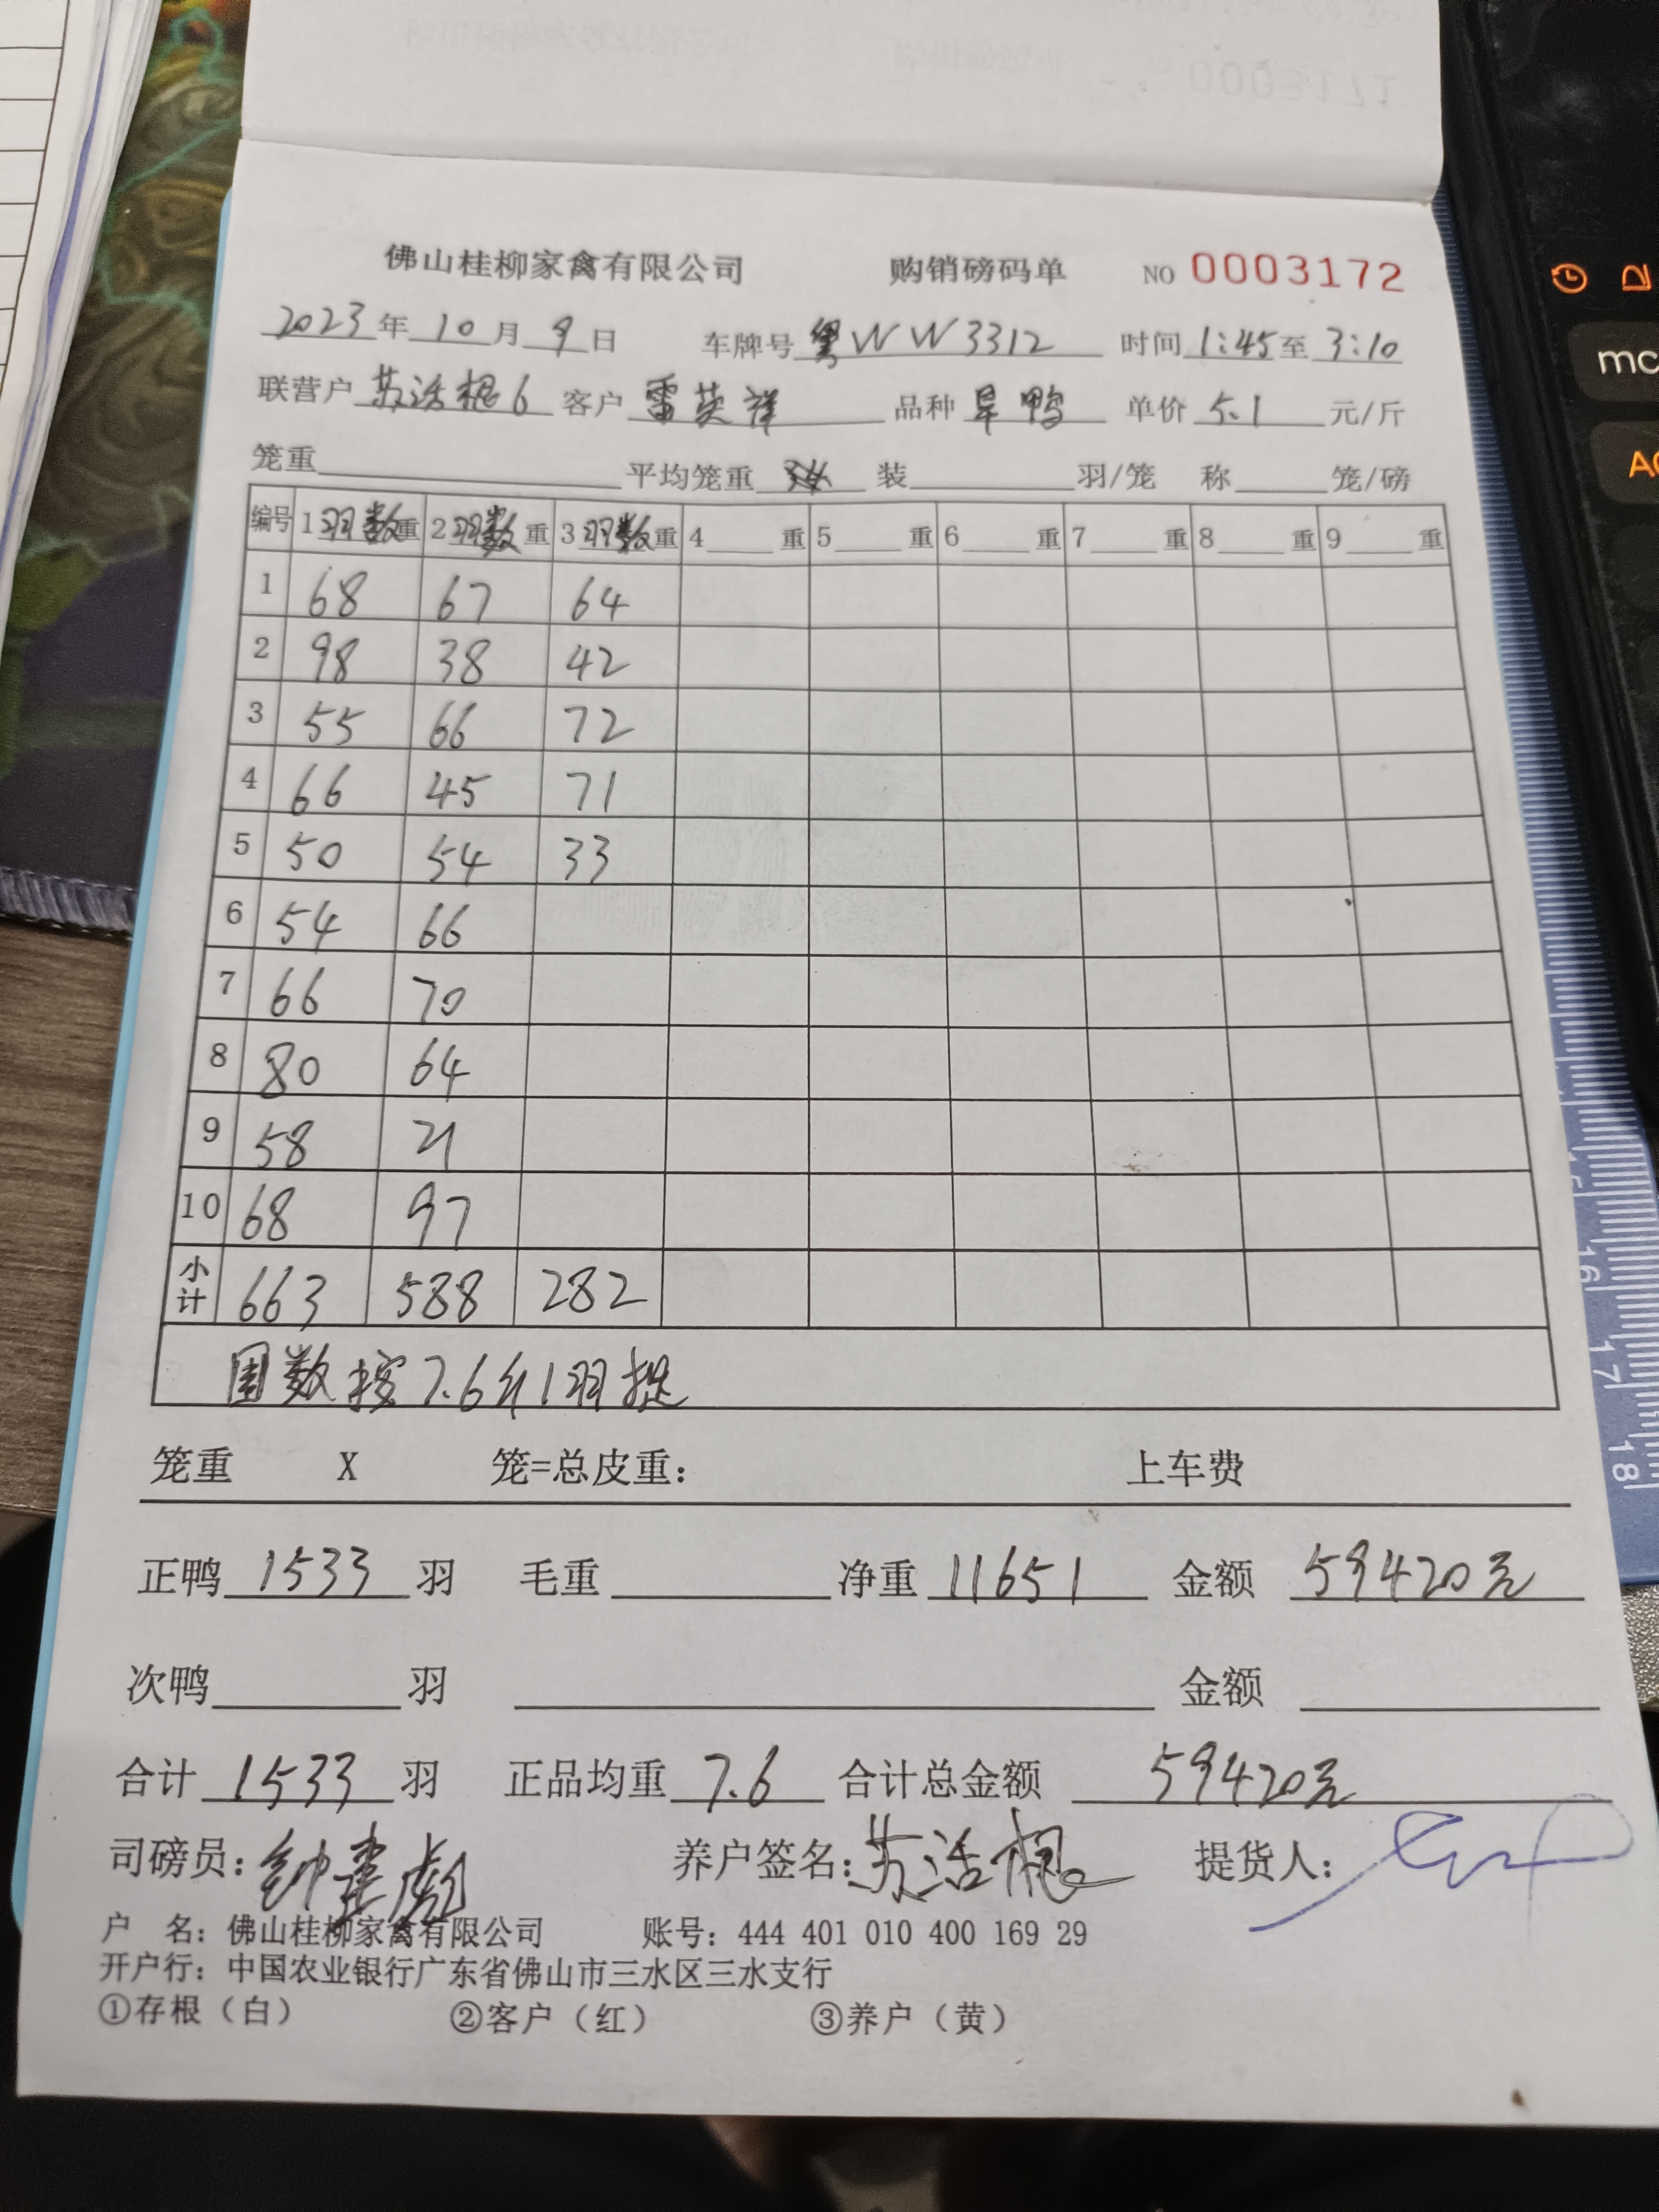 佛山桂柳家禽有限公司 购销磅码单 NO 0003172
2023年10月9日 车牌号 粤WW3312 时间 1:45至3:10
联营户 苏活根6 客户 雷英祥 品种 旱鸭 单价 5.1 元/斤
笼重 平均笼重 装 羽/笼 称 笼/磅
编号 1羽数重 2羽数重 3羽数重 4 重 5 重 6 重 7 重 8 重 9 重
1 68 67 64
2 98 38 42
3 55 66 72
4 66 45 71
5 50 54 33
6 54 66
7 66 70
8 80 64
9 58 21
10 68 97
小计 663 588 282
围数按7.6斤1羽捉
笼重 X 笼=总皮重: 上车费
正鸭 1533 羽 毛重 净重 11651 金额 59420元
次鸭 羽 金额
合计 1533 羽 正品均重 7.6 合计总金额 59420元
司磅员: 钟建彪 养户签名: 苏活根 提货人:
户 名: 佛山桂柳家禽有限公司 账号: 444 401 010 400 169 29
开户行: 中国农业银行广东省佛山市三水区三水支行
①存根(白) ②客户(红) ③养户(黄)
mc
16
17
18